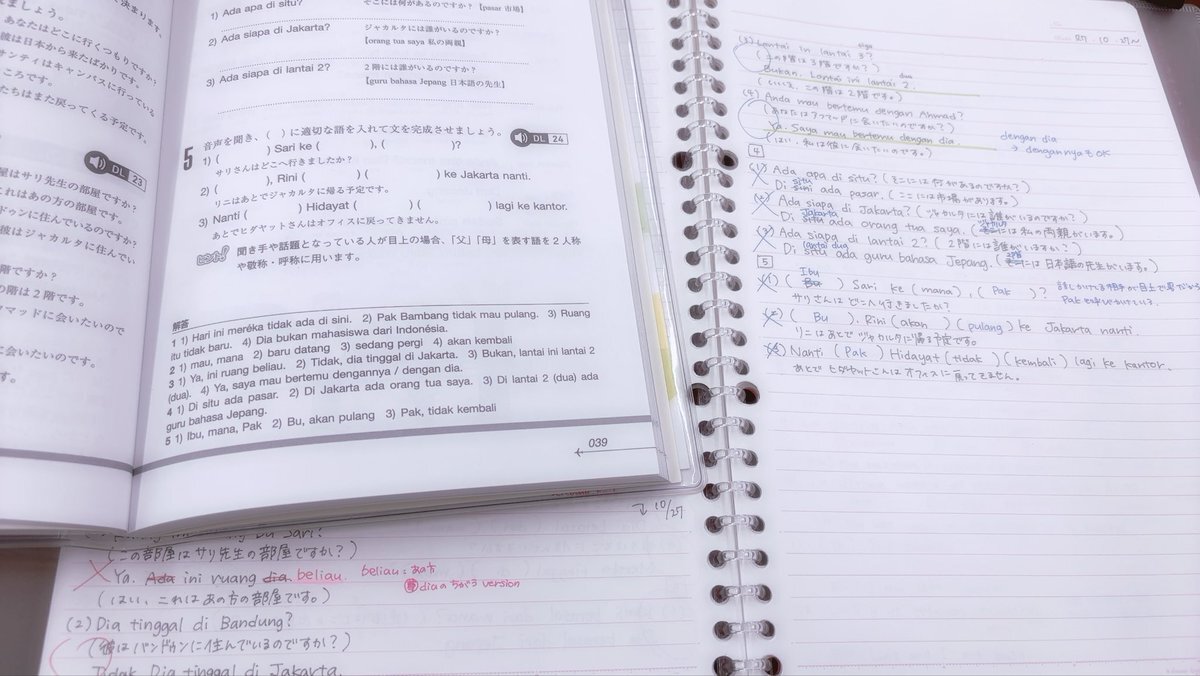 決まります。
ましょう。
あなたはどこに行くつもりですか
彼は日本から来たばかりです。
サンティはキャンパスに行っている
ころです。
たちはまた戻ってくる予定です。
DL 23
屋はサリ先生の部屋ですか？
これはあの方の部屋です。
ドゥンに住んでいるのですか？
彼はジャカルタに住んでい
階ですか？
の階は2階です。
マッドに会いたいので
に会いたいのです。
す。
1) Ada apa di situ?
そこには何があるのですか？【pasar 市場】
2) Ada siapa di Jakarta?
ジャカルタには誰がいるのですか？
【orang tua saya 私の両親】
3) Ada siapa di lantai 2?
2階には誰がいるのですか？
【guru bahasa Jepang 日本語の先生】
5 音声を聞き、（ ）に適切な語を入れて文を完成させましょう。 DL 24
1) ( ) Sari ke ( ), ( )?
サリさんはどこへ行きましたか？
2) ( ), Rini ( ) ( ) ke Jakarta nanti.
リニはあとでジャカルタに帰る予定です。
3) Nanti ( ) Hidayat ( ) ( ) lagi ke kantor.
あとでヒダヤットさんはオフィスに戻ってきません。
ヒント! 聞き手や話題となっている人が目上の場合、「父」「母」を表す語を2人称
や敬称・呼称に用います。
解答
1 1) Hari ini meréka tidak ada di sini. 2) Pak Bambang tidak mau pulang. 3) Ruang
itu tidak baru. 4) Dia bukan mahasiswa dari Indonésia.
2 1) mau, mana 2) baru datang 3) sedang pergi 4) akan kembali
3 1) Ya, ini ruang beliau. 2) Tidak, dia tinggal di Jakarta. 3) Bukan, lantai ini lantai 2
(dua). 4) Ya, saya mau bertemu dengannya / dengan dia.
4 1) Di situ ada pasar. 2) Di Jakarta ada orang tua saya. 3) Di lantai 2 (dua) ada
guru bahasa Jepang.
5 1) Ibu, mana, Pak 2) Bu, akan pulang 3) Pak, tidak kembali
039
10/27
Bu Sari?
(この部屋はサリ先生の部屋ですか？)
Ya. Ada ini ruang dia. beliau. beliau：あの方
diaのちがう version
(はい、これはあの方の部屋です。)
(2) Dia tinggal di Bandung?
(彼はバンドゥンに住んでいるのですか？)
Tidak Dia tinggal di Jakarta.
27・10・27〜
(3) Lantai in lantai 3?
tiga
(この階は3階ですか？)
dua
Bukan. Lantai ini lantai 2.
(いいえ、この階は2階です。)
(4) Anda mau bertemu dengan Ahmad?
(あなたはアフマッドに会いたいのですか？)
Ya. Saya mau bertemu dengan dia.
dengan dia
→ dengannyaもOK
(はい、私は彼に会いたいのです。)
4
(1) Ada apa di situ? (そこには何があるのですか？)
situ
Di sini ada pasar. (ここには市場があります。)
(2) Ada siapa di Jakarta? (ジャカルタには誰がいるのですか？)
Jakarta ジャカルタ
Di situ ada orang tua saya. (そこには私の両親がいます。)
(3) Ada siapa di lantai 2? (2階には誰がいますか？)
lantai dua 2階
Di situ ada guru bahasa Jepang. (そこには日本語の先生がいます。)
5
Ibu
(1) (Bu) Sari ke (mana), (Pak)? 話しかけてる相手が目上で男だから
サリさんはどこへ行きましたか？ Pakを呼びかけている。
(2) (Bu). Rini (akan) (pulang) ke Jakarta nanti.
リニはあとでジャカルタに帰る予定です。
(3) Nanti (Pak) Hidayat (tidak) (kembali) lagi ke kantor.
あとでヒダヤットさんはオフィスに戻ってきません。